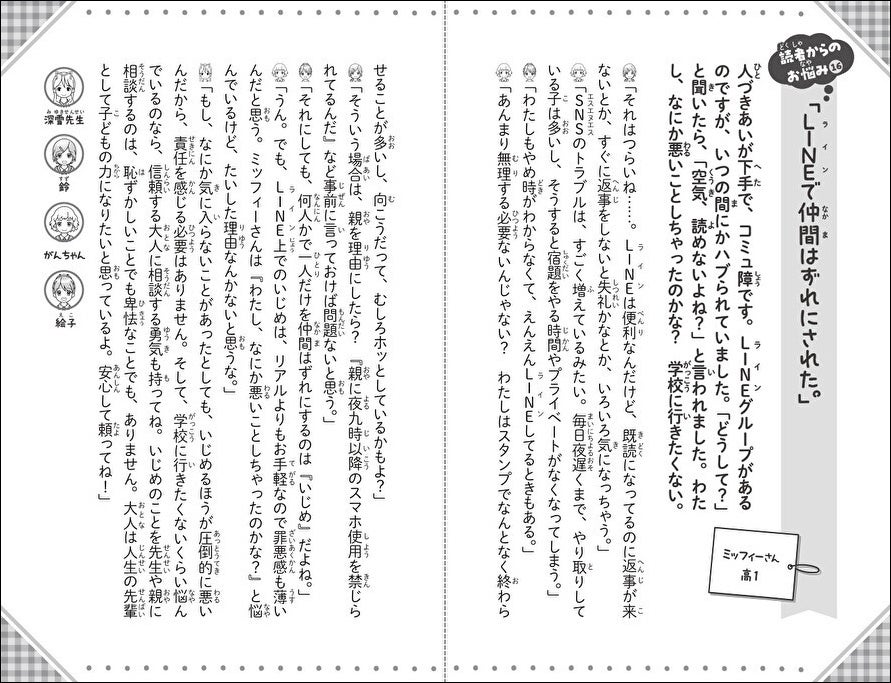 読者からのお悩み16
「LINEで仲間はずれにされた。」
人づきあいが下手で、コミュ障です。LINEグループがある
のですが、いつの間にかハブられていました。「どうして?」
と聞いたら、「空気、読めないよね?」と言われました。わた
し、なにか悪いことしちゃったのかな? 学校に行きたくない。
ミッフィーさん
高1
「それはつらいね……。LINEは便利なんだけど、既読になってるのに返事が来
ないとか、すぐに返事をしないと失礼かなとか、いろいろ気になっちゃう。」
「SNSのトラブルは、すごく増えているみたい。毎日夜遅くまで、やり取りして
いる子は多いし、そうすると宿題をやる時間やプライベートがなくなってしまう。」
「わたしもやめ時がわからなくて、えんえんLINEしてるときもある。」
「あんまり無理する必要ないんじゃない? わたしはスタンプでなんとなく終わら
せることが多いし、向こうだって、むしろホッとしているかもよ?」
「そういう場合は、親を理由にしたら? 『親に夜九時以降のスマホ使用を禁じら
れてるんだ』など事前に言っておけば問題ないと思う。」
「それにしても、何人かで一人だけを仲間はずれにするのは『いじめ』だよね。」
「うん。でも、LINE上でのいじめは、リアルよりもお手軽なので罪悪感も薄い
んだと思う。ミッフィーさんは『わたし、なにか悪いことしちゃったのかな?』と悩
んでいるけど、たいした理由なんかないと思うな。」
「もし、なにか気に入らないことがあったとしても、いじめるほうが圧倒的に悪い
んだから、責任を感じる必要はありません。そして、学校に行きたくないくらい悩ん
でいるのなら、信頼する大人に相談する勇気も持ってね。いじめのことを先生や親に
相談するのは、恥ずかしいことでも卑怯なことでも、ありません。大人は人生の先輩
として子どもの力になりたいと思っているよ。安心して頼ってね!」
深雪先生
鈴
がんちゃん
絵子